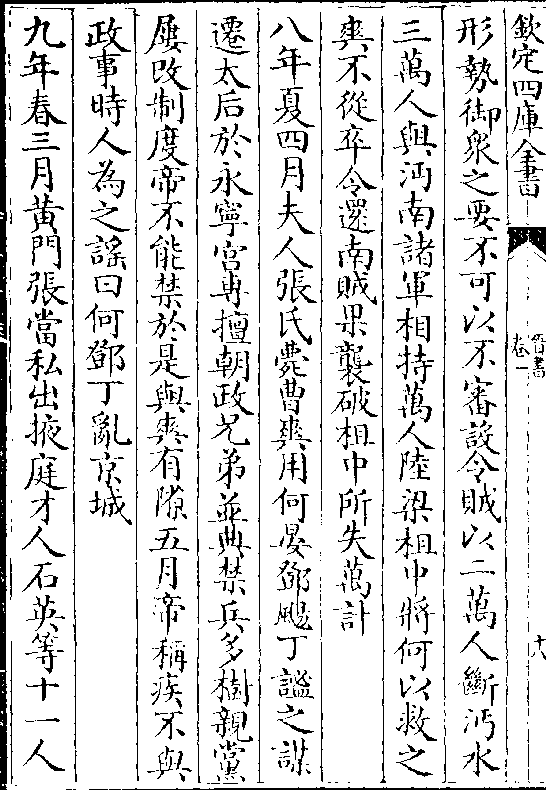 欽定四庫全書
晉書
卷一
十八
形勢御衆之要不可以不審設令賊以二萬人斷沔水
三萬人與沔南諸軍相持萬人陸梁柤中將何以救之
爽不從卒令還南賊果襲破柤中所失萬計
八年夏四月夫人張氏薨曹爽用何晏鄧颺丁謐之謀
遷太后於永寧宮專擅朝政兄弟並典禁兵多樹親黨
屢改制度帝不能禁於是與爽有隙五月帝稱疾不與
政事時人為之謠曰何鄧丁亂京城
九年春三月黃門張當私出掖庭才人石英等十一人